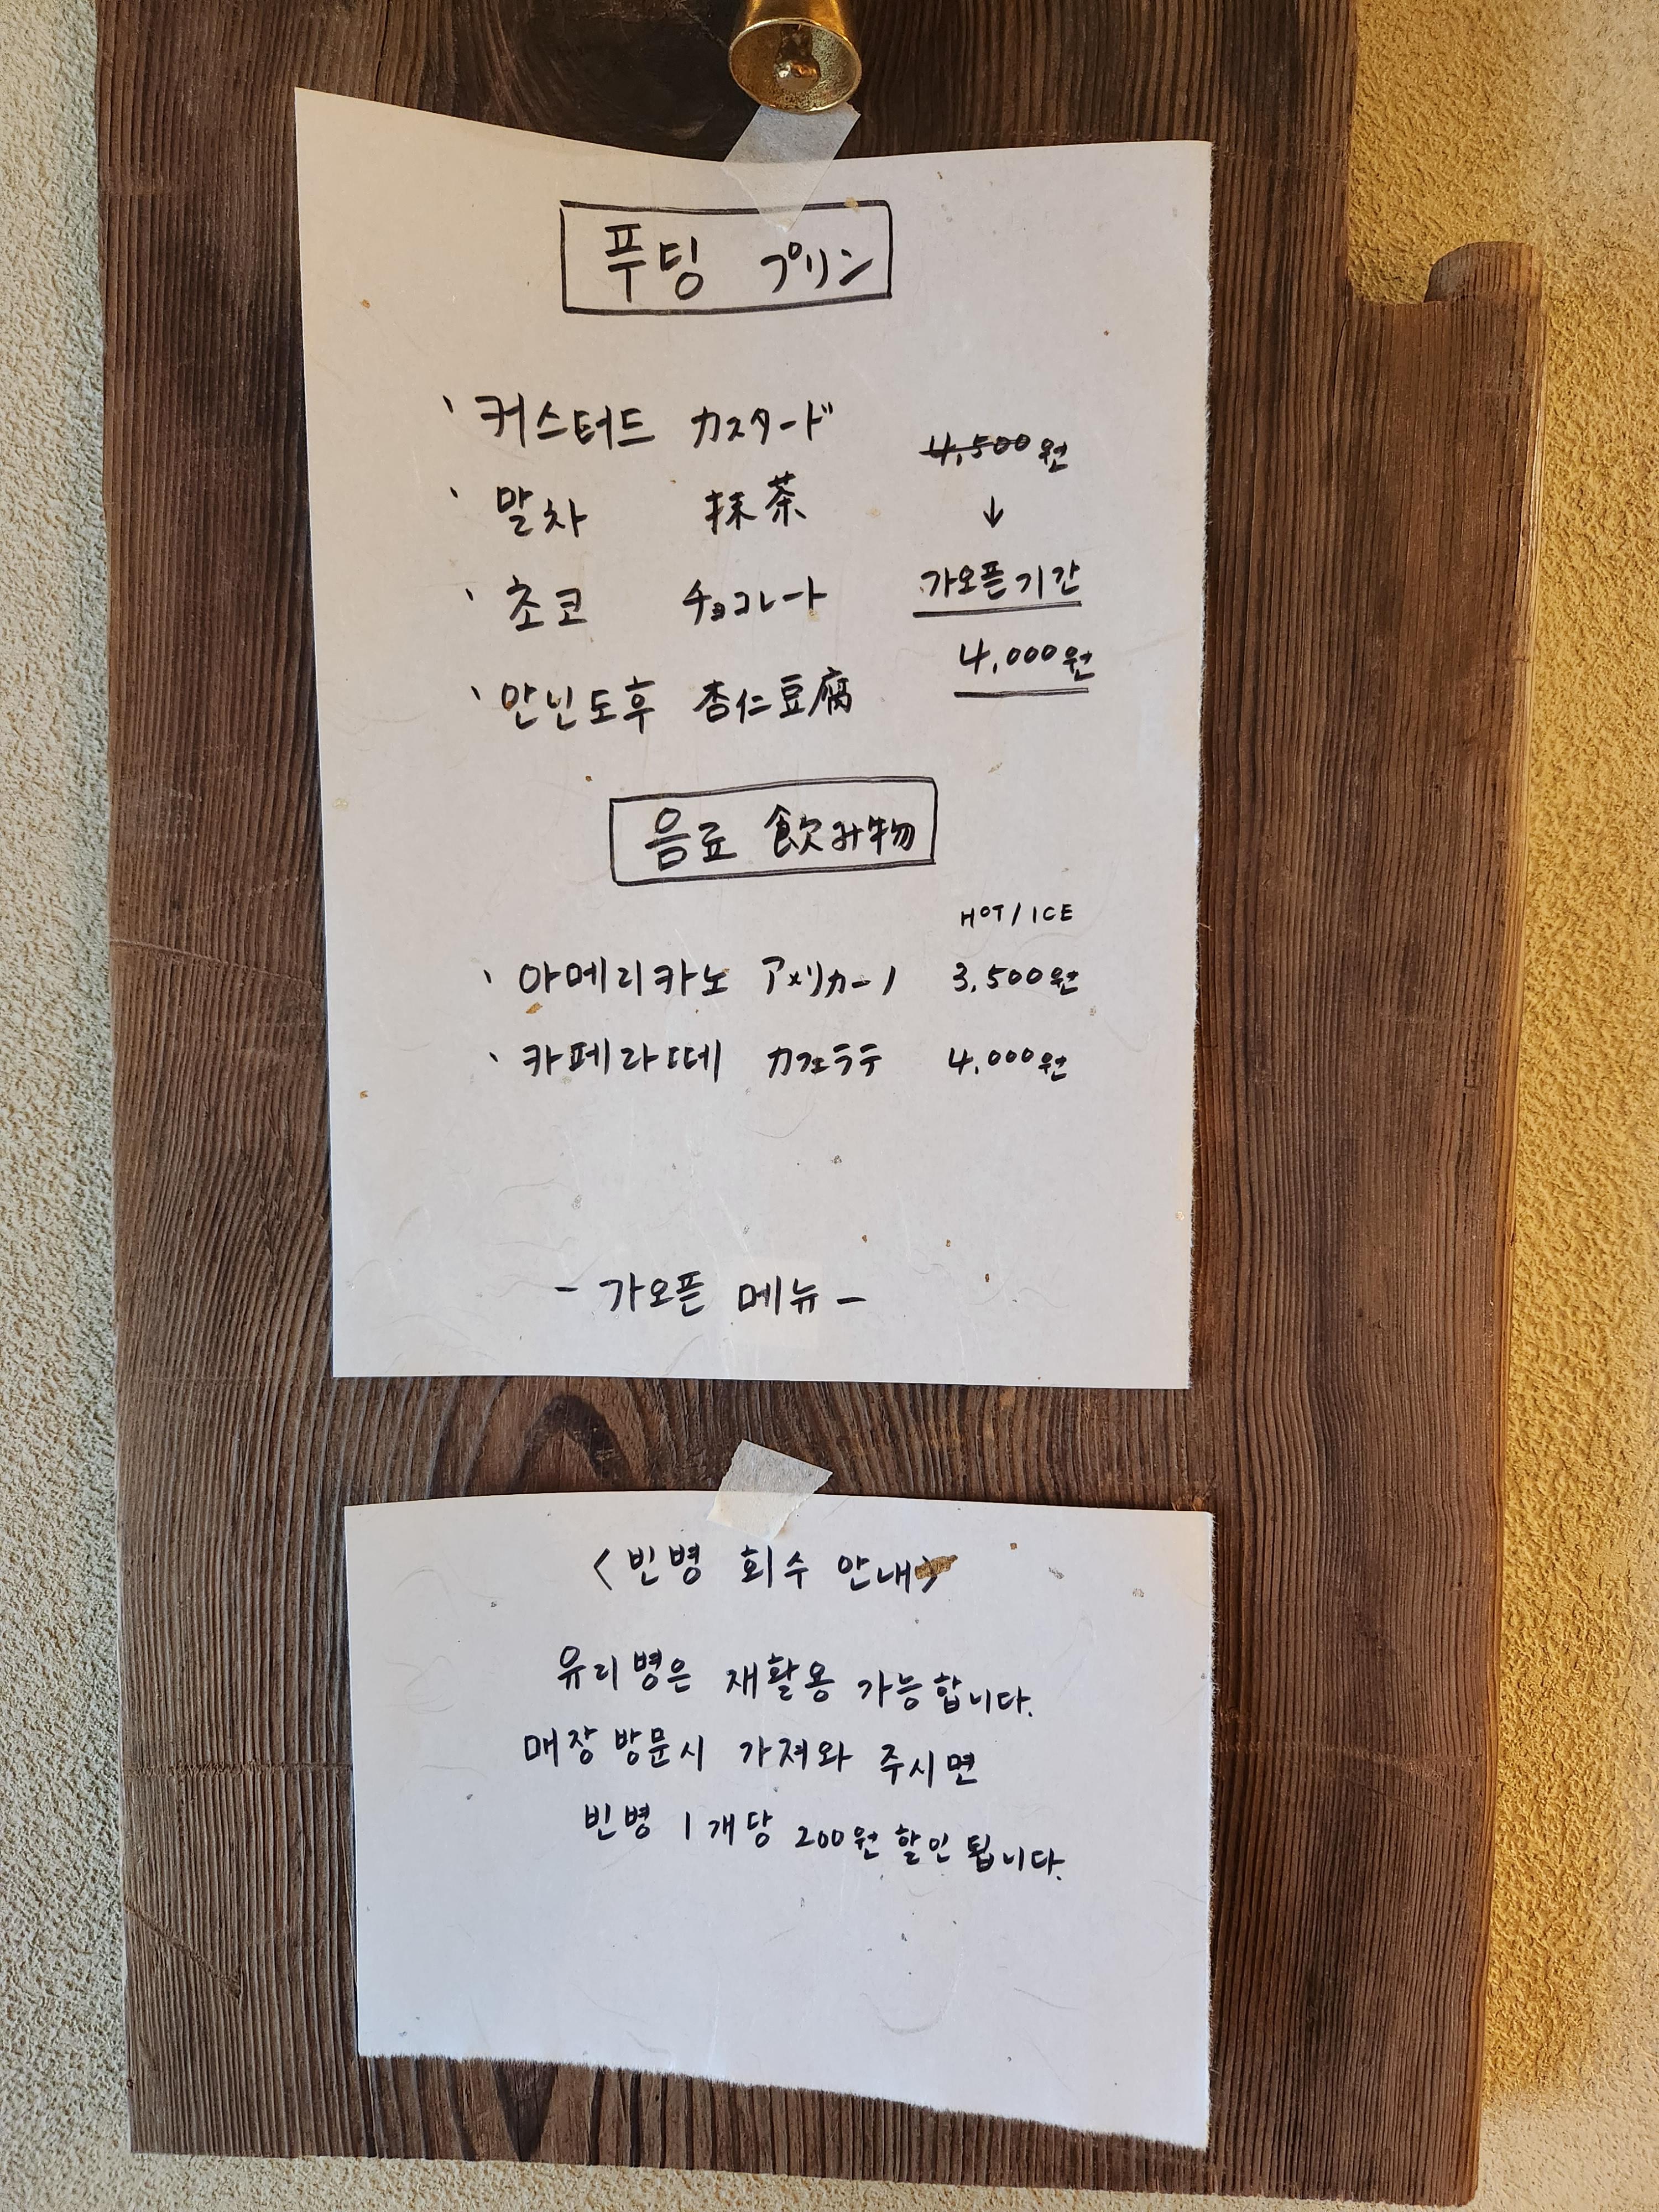 푸딩 プリン
、커스터드 カスタード
4,500원
、말차 抹茶
↓
、초코 チョコレート
가오픈기간
、안닌도후 杏仁豆腐
4,000원
음료 飲み物
HOT/ICE
、아메리카노 アメリカーノ 3,500원
、카페라떼 カフェラテ 4,000원
- 가오픈 메뉴 -
<빈병 회수 안내>
유리병은 재활용 가능합니다.
매장 방문시 가져와 주시면
빈병 1개당 200원 할인 됩니다.